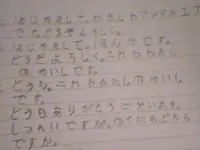 はじめまして。わたしわアンデルエフ
です。どうぞよろしく。
はじめまして。ほんごです。
どうぞよろしく。これわわたし
のめいしです。
どうも。これわわたしのめいし
です。
どうもありがとうございます。
しつれいですが。おくにわどちら
ですか。